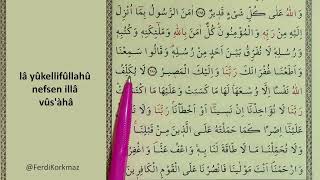 lâ yûkellifûllahû
nefsen illâ
vüs'àhâ
@FerdiKorkmaz
وَاللّٰهُ عَلٰى كُلِّ شَيْءٍ قَدِيرٌ اٰمَنَ الرَّسُولُ بِمَا اُنْزِلَ
اِلَيْهِ مِنْ رَبِّهِ وَالْمُؤْمِنُونَ كُلٌّ اٰمَنَ بِاللّٰهِ وَمَلٰئِكَتِهِ وَكُتُبِهِ
وَرُسُلِهِ لَا نُفَرِّقُ بَيْنَ اَحَدٍ مِنْ رُسُلِهِ وَقَالُوا سَمِعْنَا
وَاَطَعْنَا غُفْرَانَكَ رَبَّنَا وَاِلَيْكَ الْمَصِيرُ لَا يُكَلِّفُ
رَبَّنَا لَا تُؤَاخِذْنَا اِنْ نَسِينَا اَوْ اَخْطَأْنَا رَبَّنَا وَلَا
عَلَيْنَا اِصْرًا كَمَا حَمَلْتَهُ عَلَى الَّذِينَ مِنْ قَبْلِنَا
وَلَا تُحَمِّلْنَا مَا لَا طَاقَةَ لَنَا بِهِ وَاعْفُ عَنَّا وَاغْفِرْ لَنَا
وَارْحَمْنَا اَنْتَ مَوْلٰينَا فَانْصُرْنَا عَلَى الْقَوْمِ الْكَافِرِينَ